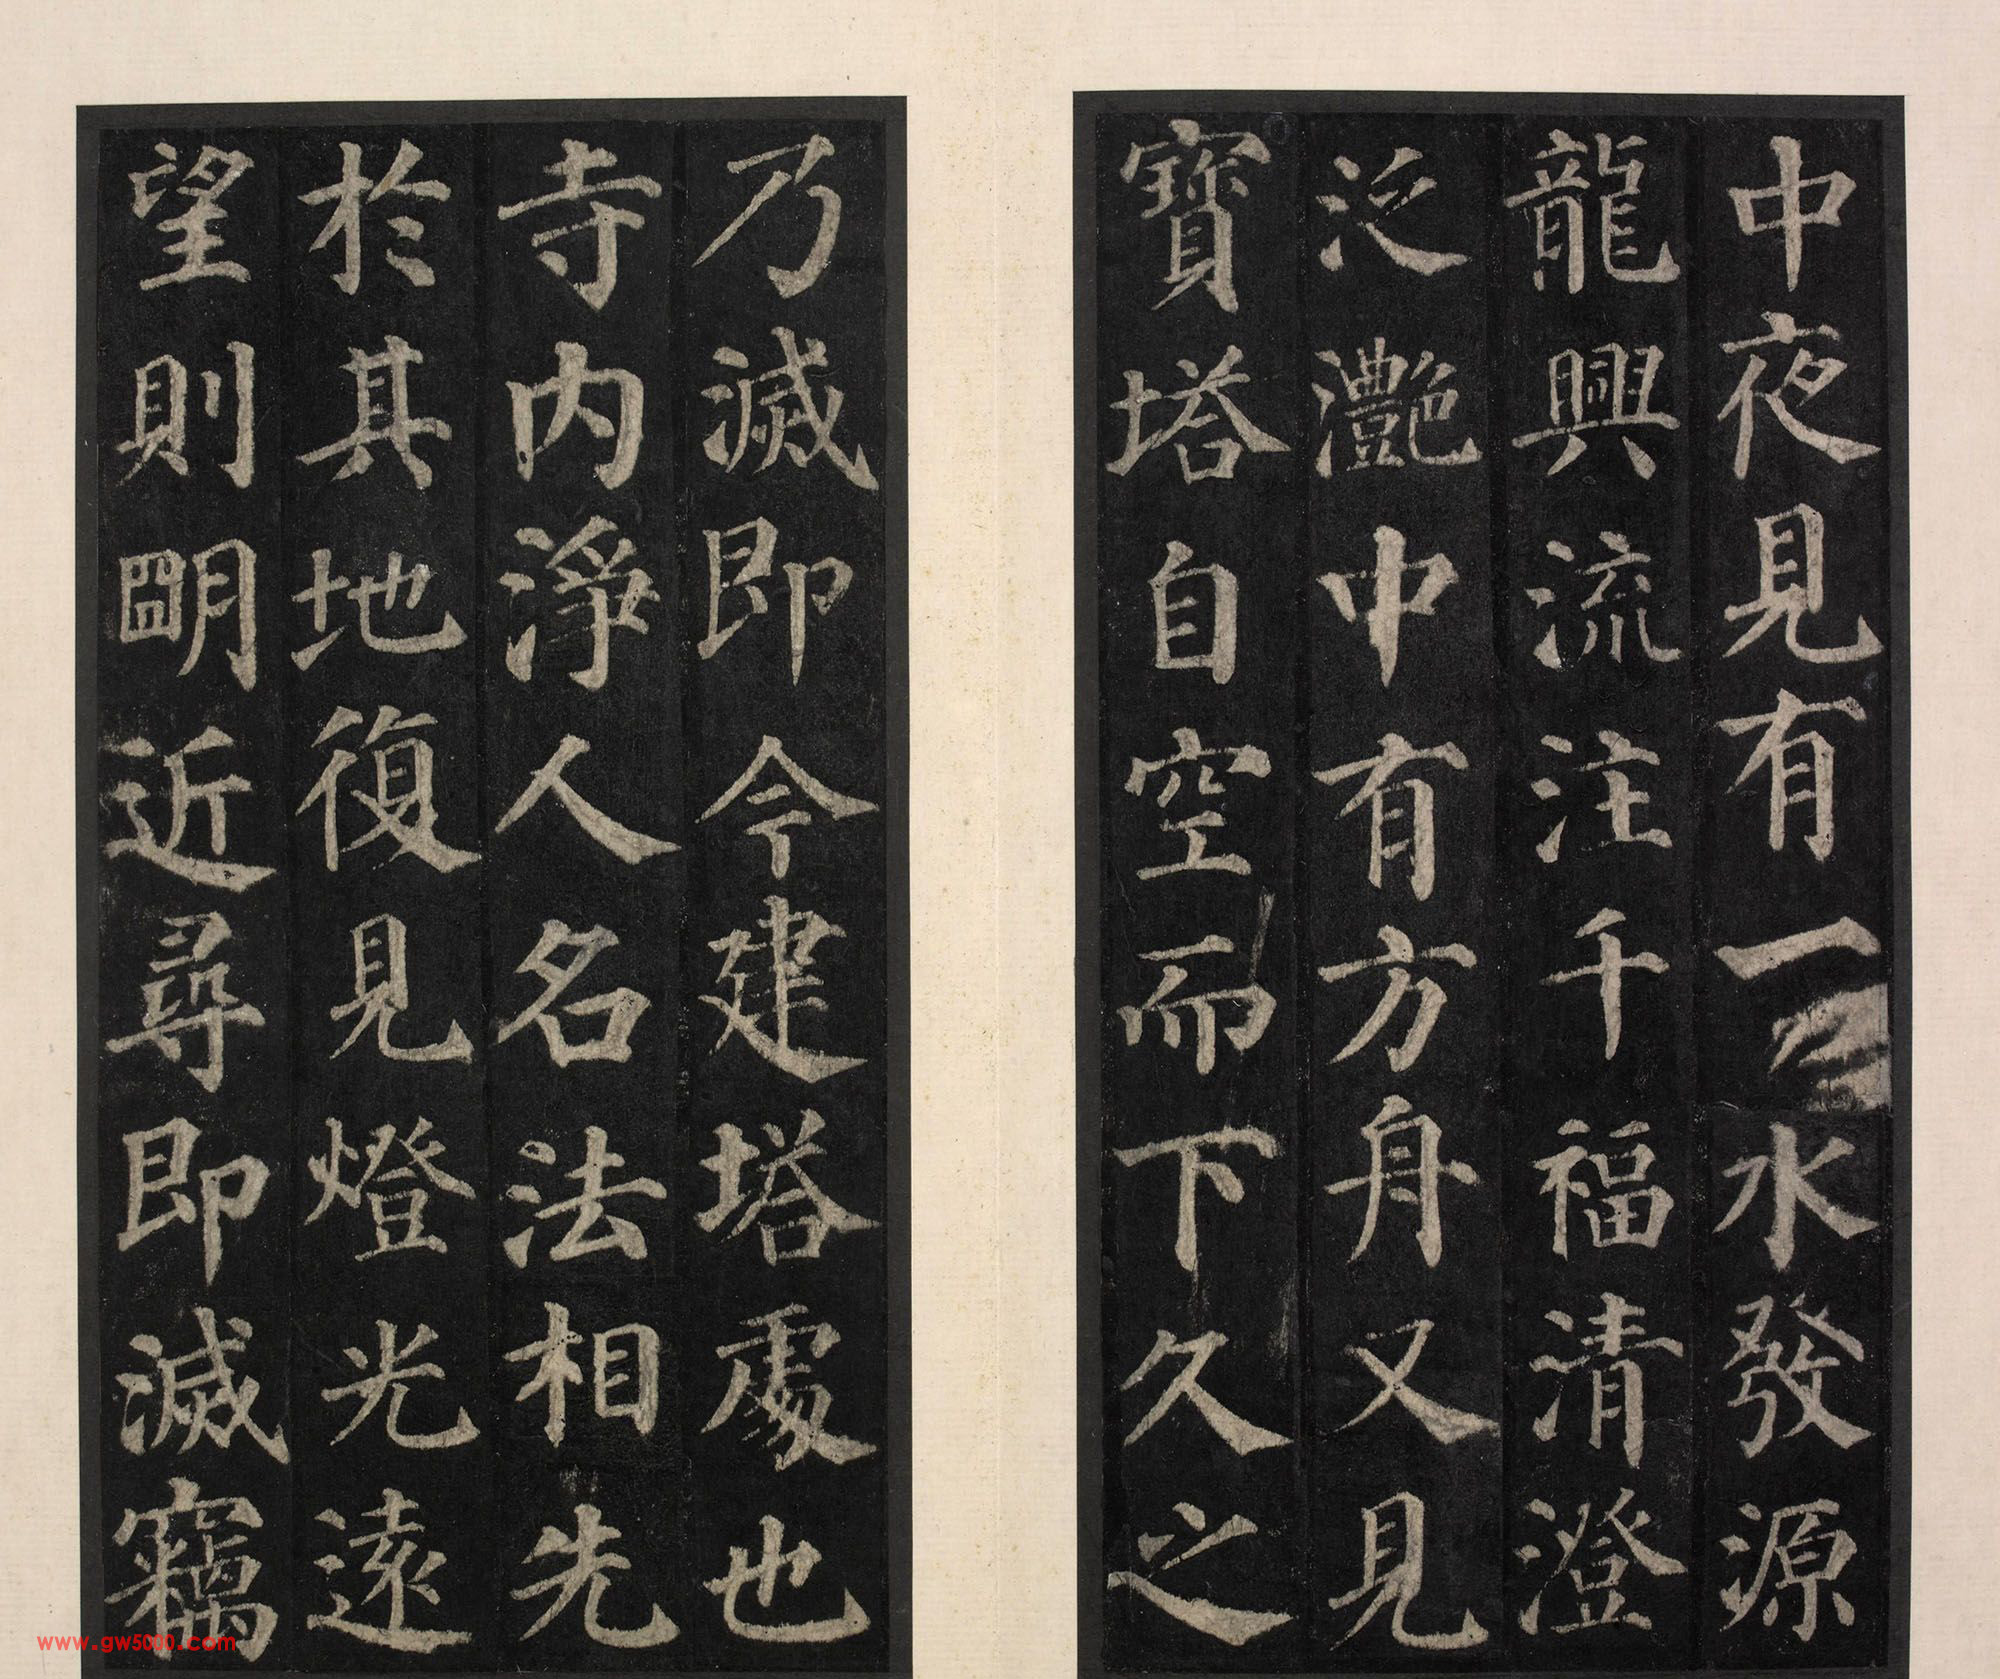 中夜見有一水發源
龍興流注千福清澄
泛灩中有方舟又見
寶塔自空而下久之
乃滅即今建塔處也
寺內淨人名法相先
於其地復見燈光遠
望則明近尋即滅竊
www.gw5000.com